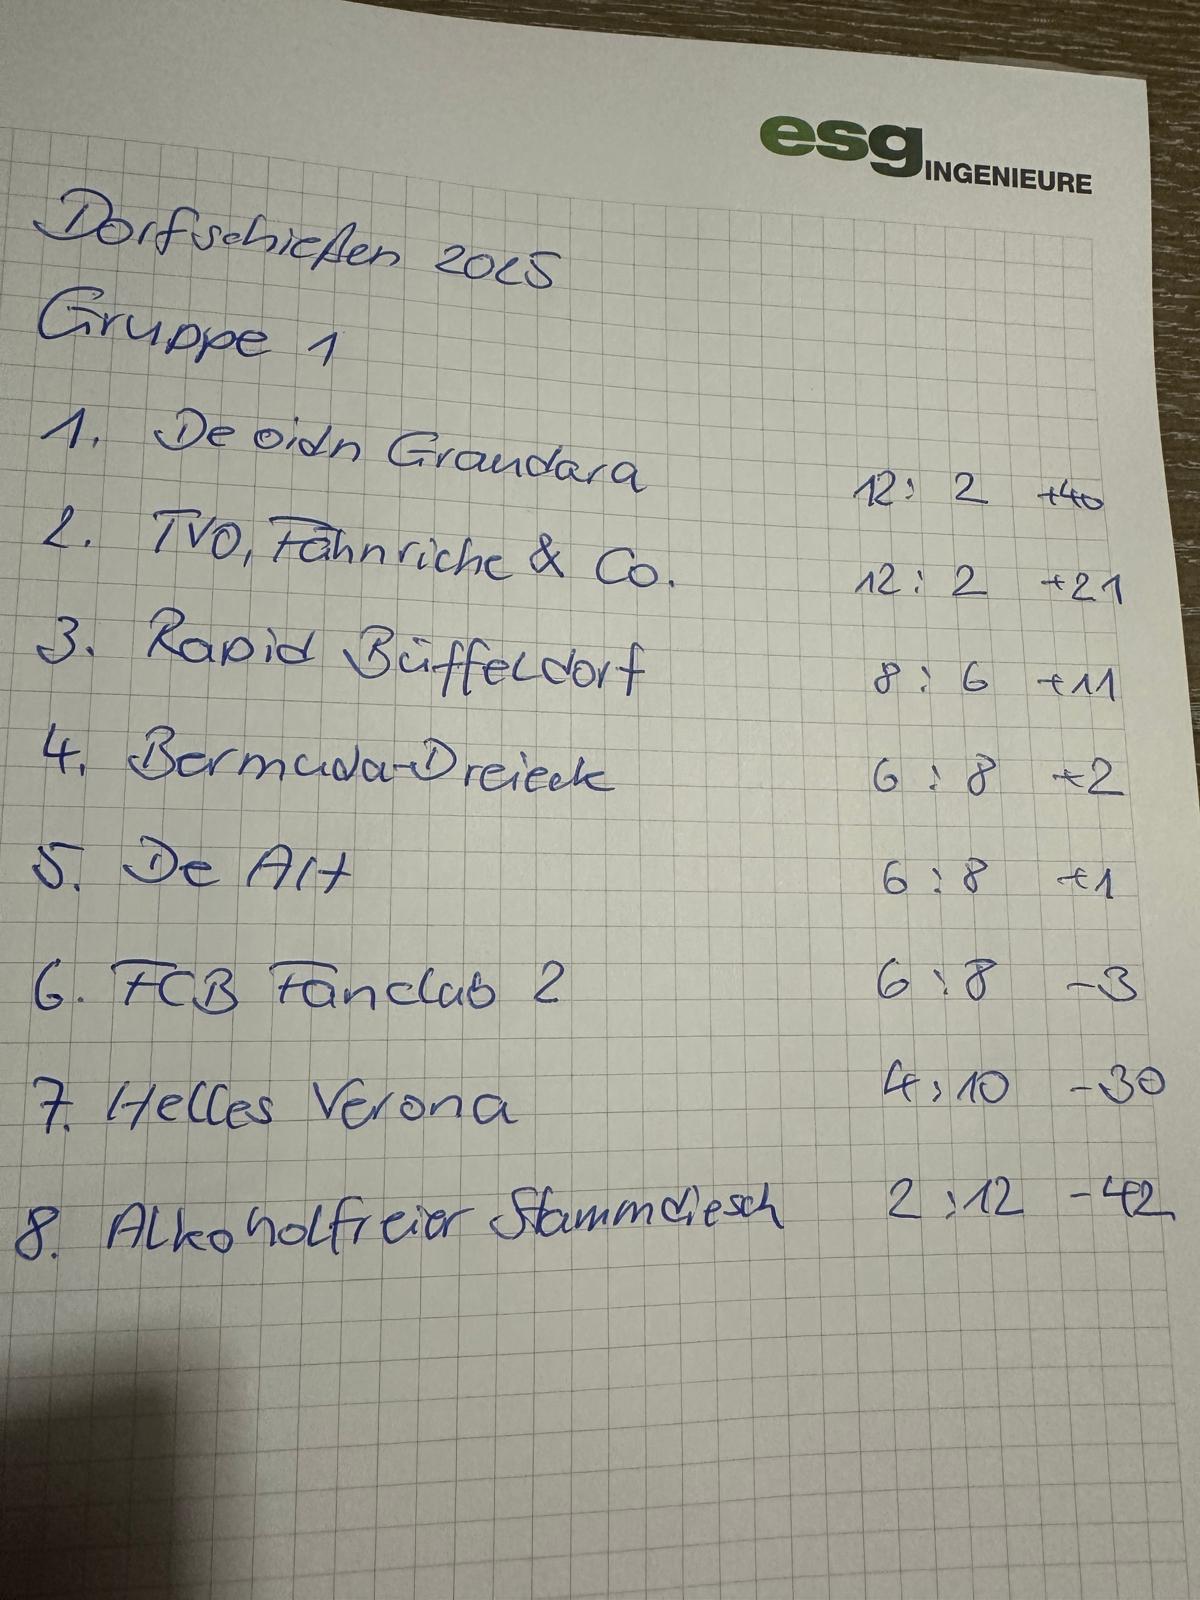 esg INGENIEURE
Dorfschießen 2025
Gruppe 1
1. De oidn Grandara 12:2 +40
2. TVO, Fähnriche & Co. 12:2 +21
3. Rapid Büffeldorf 8:6 +11
4. Bermuda-Dreieck 6:8 +2
5. De Alt 6:8 +1
6. FCB Fanclub 2 6:8 -3
7. Helles Verona 4:10 -30
8. Alkoholfreier Stammdiesch 2:12 -42